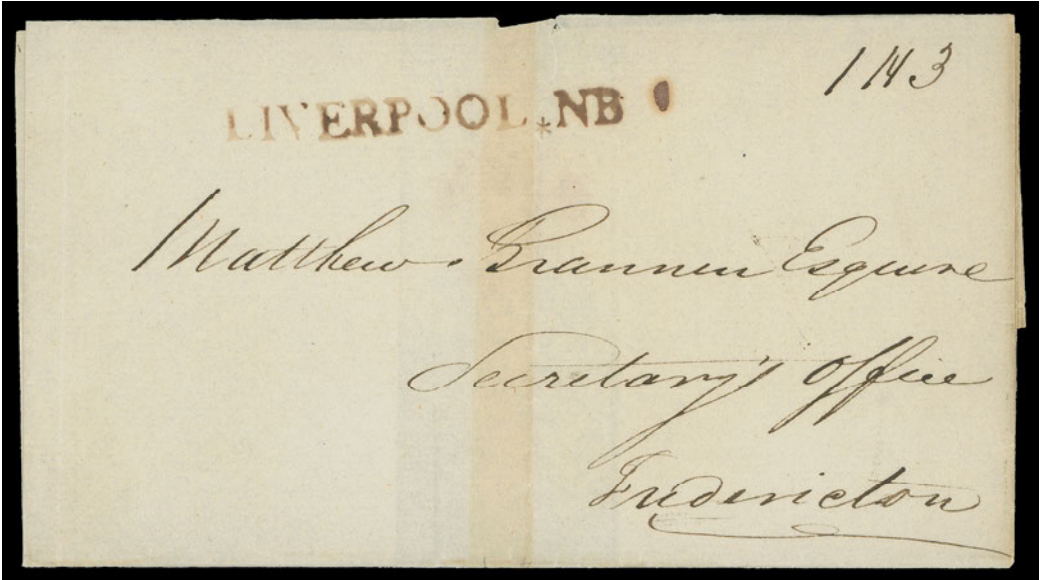 1 N 3
LIVERPOOL*NB
Matthew Brannen Esquire
Secretary's Office
Fredericton